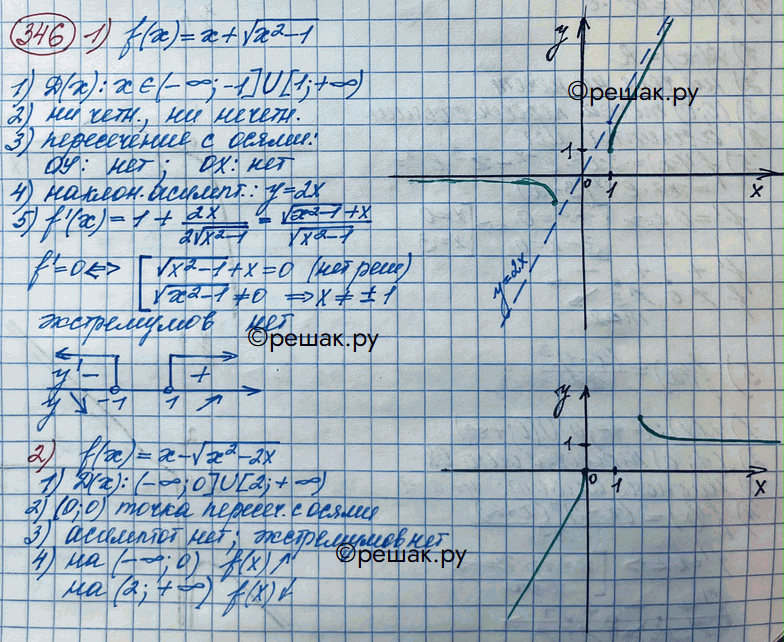 346 1) f(x) = x + √x²-1
1) D(x): x ∈ (-∞; -1] U [1; +∞)
2) ни четн., ни нечетн.
3) пересечение с осями:
OY: нет; OX: нет
4) наклон. асимпт.: y = 2x
5) f'(x) = 1 + 2x / 2√x²-1 = √x²-1 + x / √x²-1
f' = 0 <=> [ √x²-1 + x = 0 (нет реш)
√x²-1 ≠ 0 => x ≠ ±1
экстремумов нет
©решак.ру
y' - +
y ↘ -1 1 ↗
y
©решак.ру
1
0 1 x
y=2x
2) f(x) = x - √x²-2x
1) D(x): (-∞; 0] U [2; +∞)
2) (0; 0) точка пересеч. с осями
3) асимптот нет; экстремумов нет
4) на (-∞; 0) f(x) ↗
©решак.ру
на (2; +∞) f(x) ↓
y
1
0 1 x